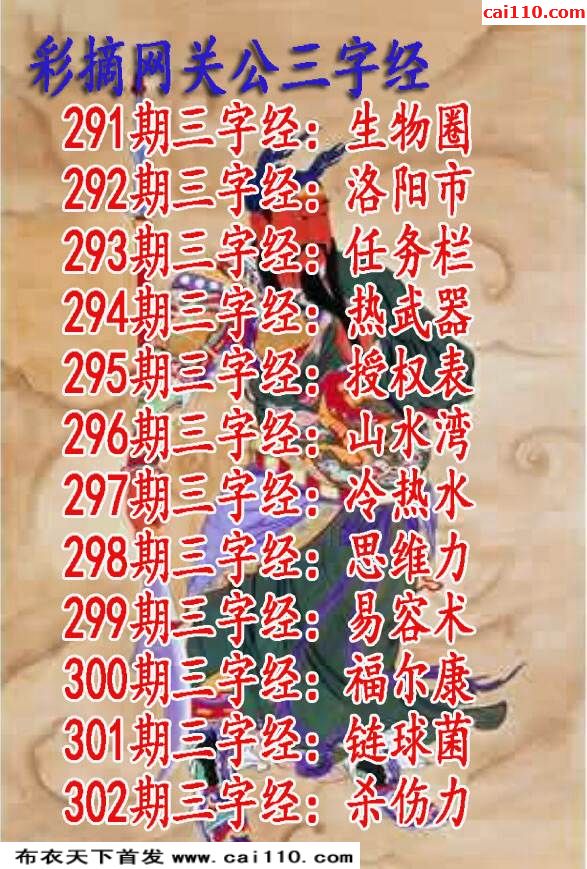 cai110.com
彩摘网关公三字经
291期三字经：生物圈
292期三字经：洛阳市
293期三字经：任务栏
294期三字经：热武器
295期三字经：授权表
296期三字经：山水湾
297期三字经：冷热水
298期三字经：思维力
299期三字经：易容术
300期三字经：福尔康
301期三字经：链球菌
302期三字经：杀伤力
布衣天下首发 www.cai110.com